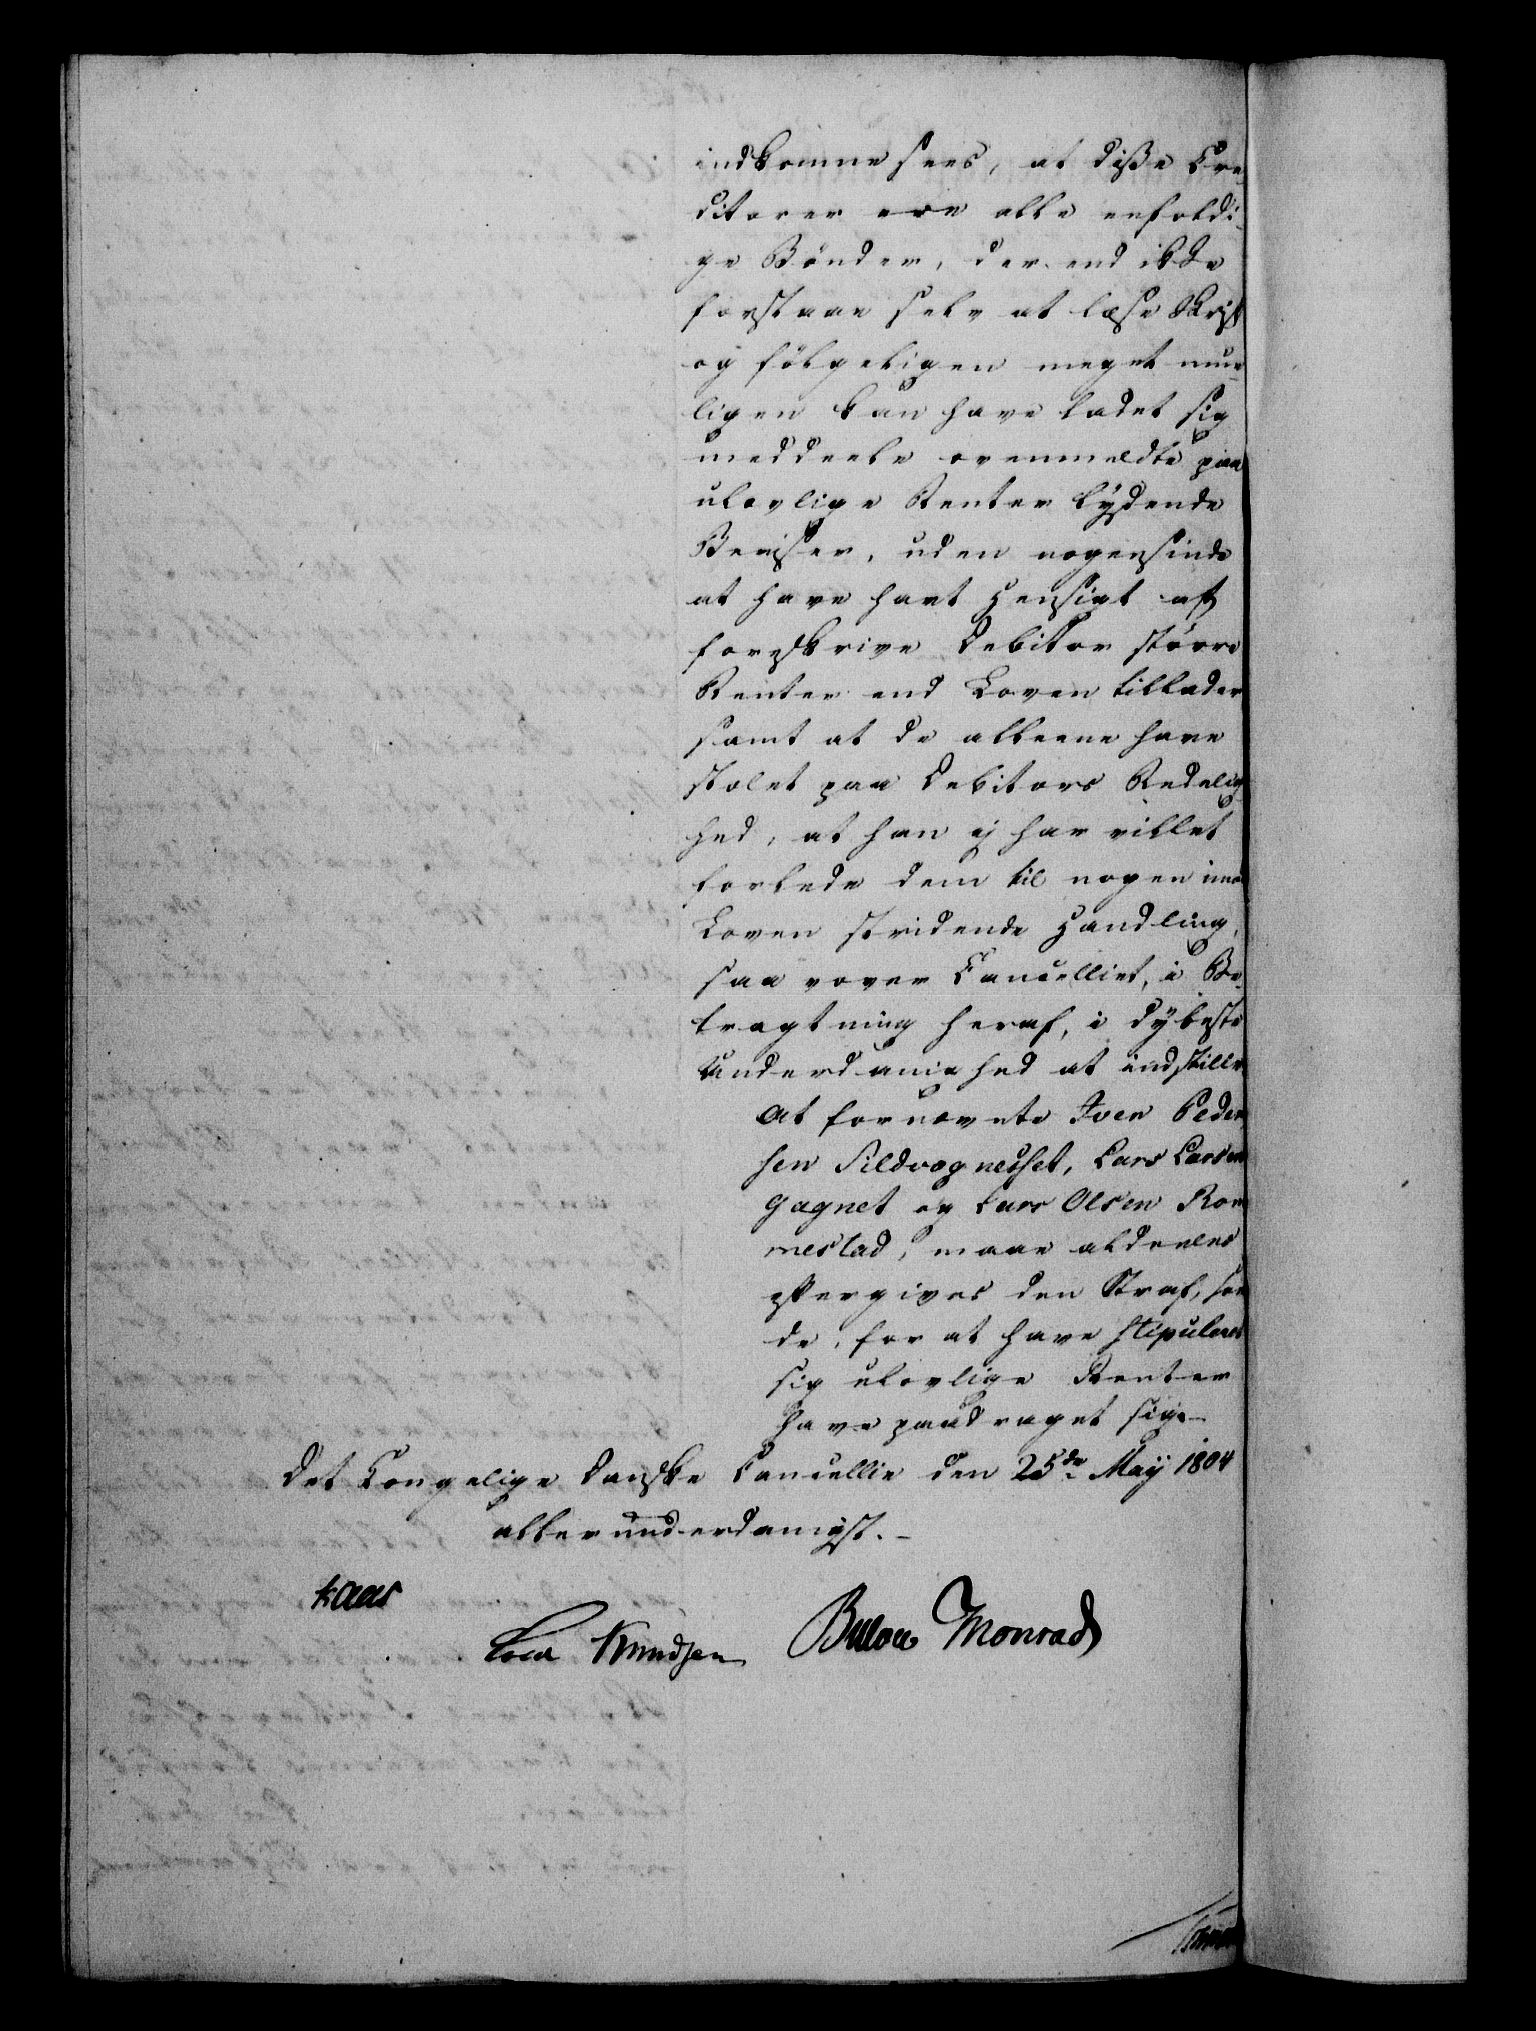 indkomne sees, at disse Cre-
ditorer ere alle enfoldi-
ge Bönder, der end ikke
forstaae selv at læse Skrift
og fölgeligen meget mue-
ligen kan have ladet sig
meddeele ovenmeldte paa
ulovlige Renter lydende
Beviser, uden nogensinde
at have havt Hensigt at
foreskrive Debitor större
Renter end Loven tillader
samt at de alleene have
stolet paa Debitors Redelig-
hed, at han ej har villet
forlede dem til nogen imod
Loven stridende Handling,
saa vover Cancelliet, i Be-
tragtning heraf, i dybeste
Underdanighed at indstille
At fornævnte Iver Peder-
sen Sildvognesset, Lars Larsen
Gagnet og Lars Olsen Rom-
mestad, maae aldeeles
eftergives den Straf, som
de, for at have stipuleret
sig ulovlige Renter
have paadraget sig.-
Det Kongelige Danske Cancellie den 25de May 1804
allerunderdanigst.-
Kaas
Knudsen Bülow Monrad